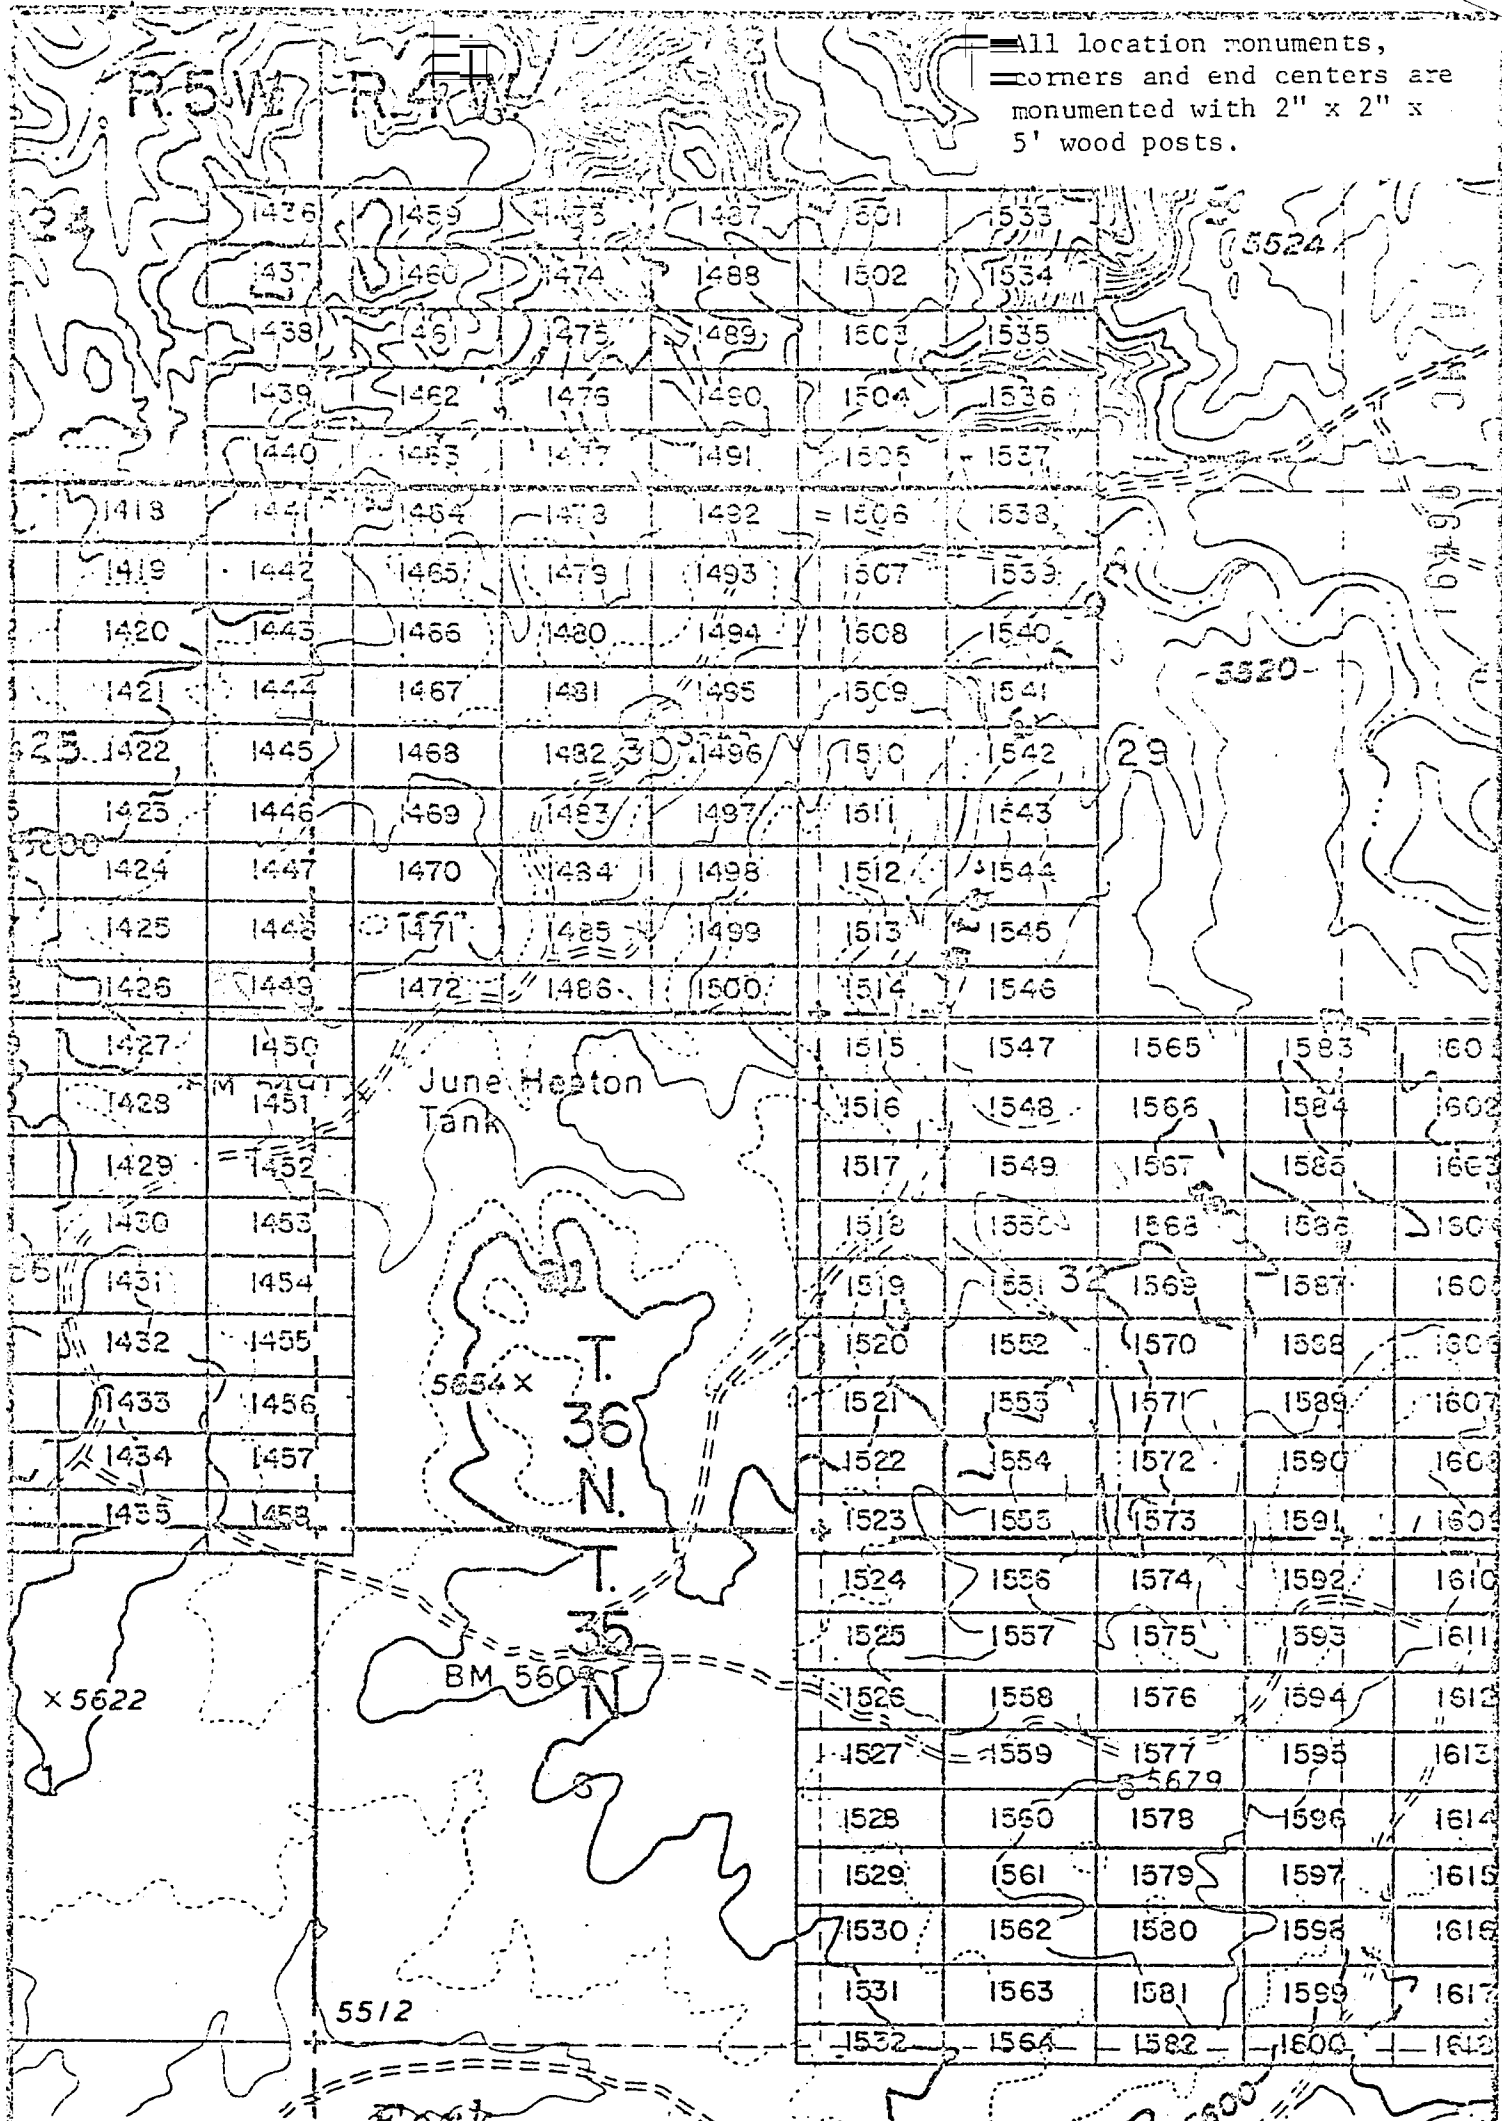 All location monuments,
corners and end centers are
monumented with 2" x 2" x
5' wood posts.
R.5W. R.4W.
1436 1459 1473 1487 1501 1533
5524
1437 1460 1474 1488 1502 1534
1438 1461 1475 1489 1503 1535
1439 1462 1476 1490 1504 1536
1440 1463 1477 1491 1505 1537
1418 1441 1464 1478 1492 1506 1538
1419 1442 1465 1479 1493 1507 1539
1420 1443 1466 1480 1494 1508 1540
5520
1421 1444 1467 1481 1495 1509 1541
25 1422 1445 1468 1482 30 1496 1510 1542 29
1423 1446 1469 1483 1497 1511 1543
1424 1447 1470 1484 1498 1512 1544
1425 1448 1471 1485 1499 1513 1545
1426 1449 1472 1486 1500 1514 1546
1427 1450 1515 1547 1565 1583 160
June Heaton
Tank
1428 1451 1516 1548 1566 1584 1602
1429 1452 1517 1549 1567 1585 1603
1430 1453 1518 1550 1568 1586 160
1431 1454 31 1519 1551 32 1569 1587 160
1432 1455 1520 1552 1570 1588 160
5654 ×
T.
36
N.
1433 1456 1521 1553 1571 1589 1607
1434 1457 1522 1554 1572 1590 160
1435 1458 1523 1555 1573 1591 160
T.
35
N
1524 1556 1574 1592 1610
1525 1557 1575 1593 1611
BM 560
× 5622
1526 1558 1576 1594 1612
1527 1559 1577 1595 1613
5 5679
6
1528 1560 1578 1596 1614
1529 1561 1579 1597 1615
1530 1562 1580 1598 1616
1531 1563 1581 1599 1617
5512
1532 1564 1582 1600 1618
5600